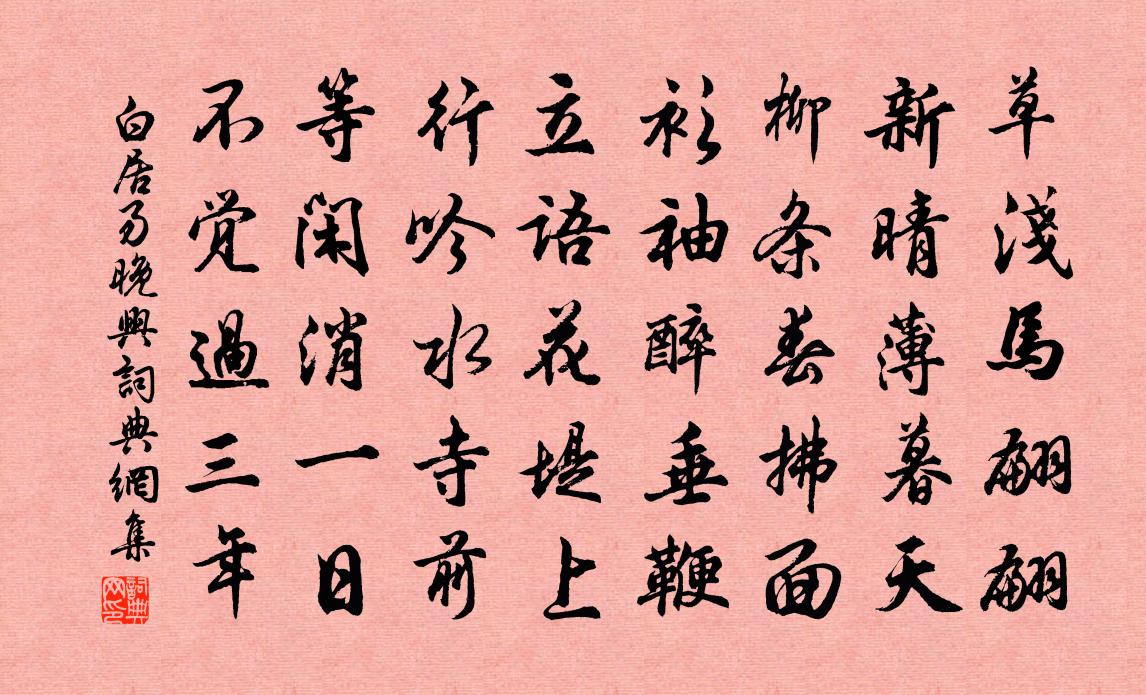 草淺馬翩翩
新晴薄暮天
柳条春拂面
衫袖醉垂鞭
立語花堤上
行吟水寺前
等閑消一日
不覺過三年
白居易晚興詞典網集
詞典網印